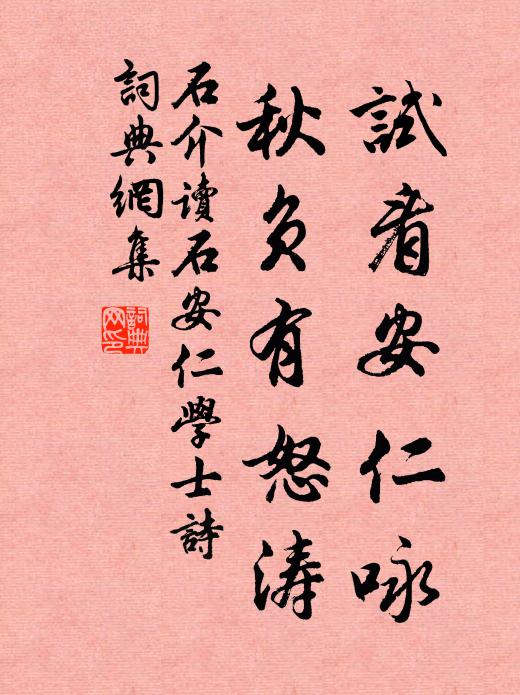 試看安仁咏
秋負有怒濤
石介讀石安仁學士詩
詞典網集
詞典網印